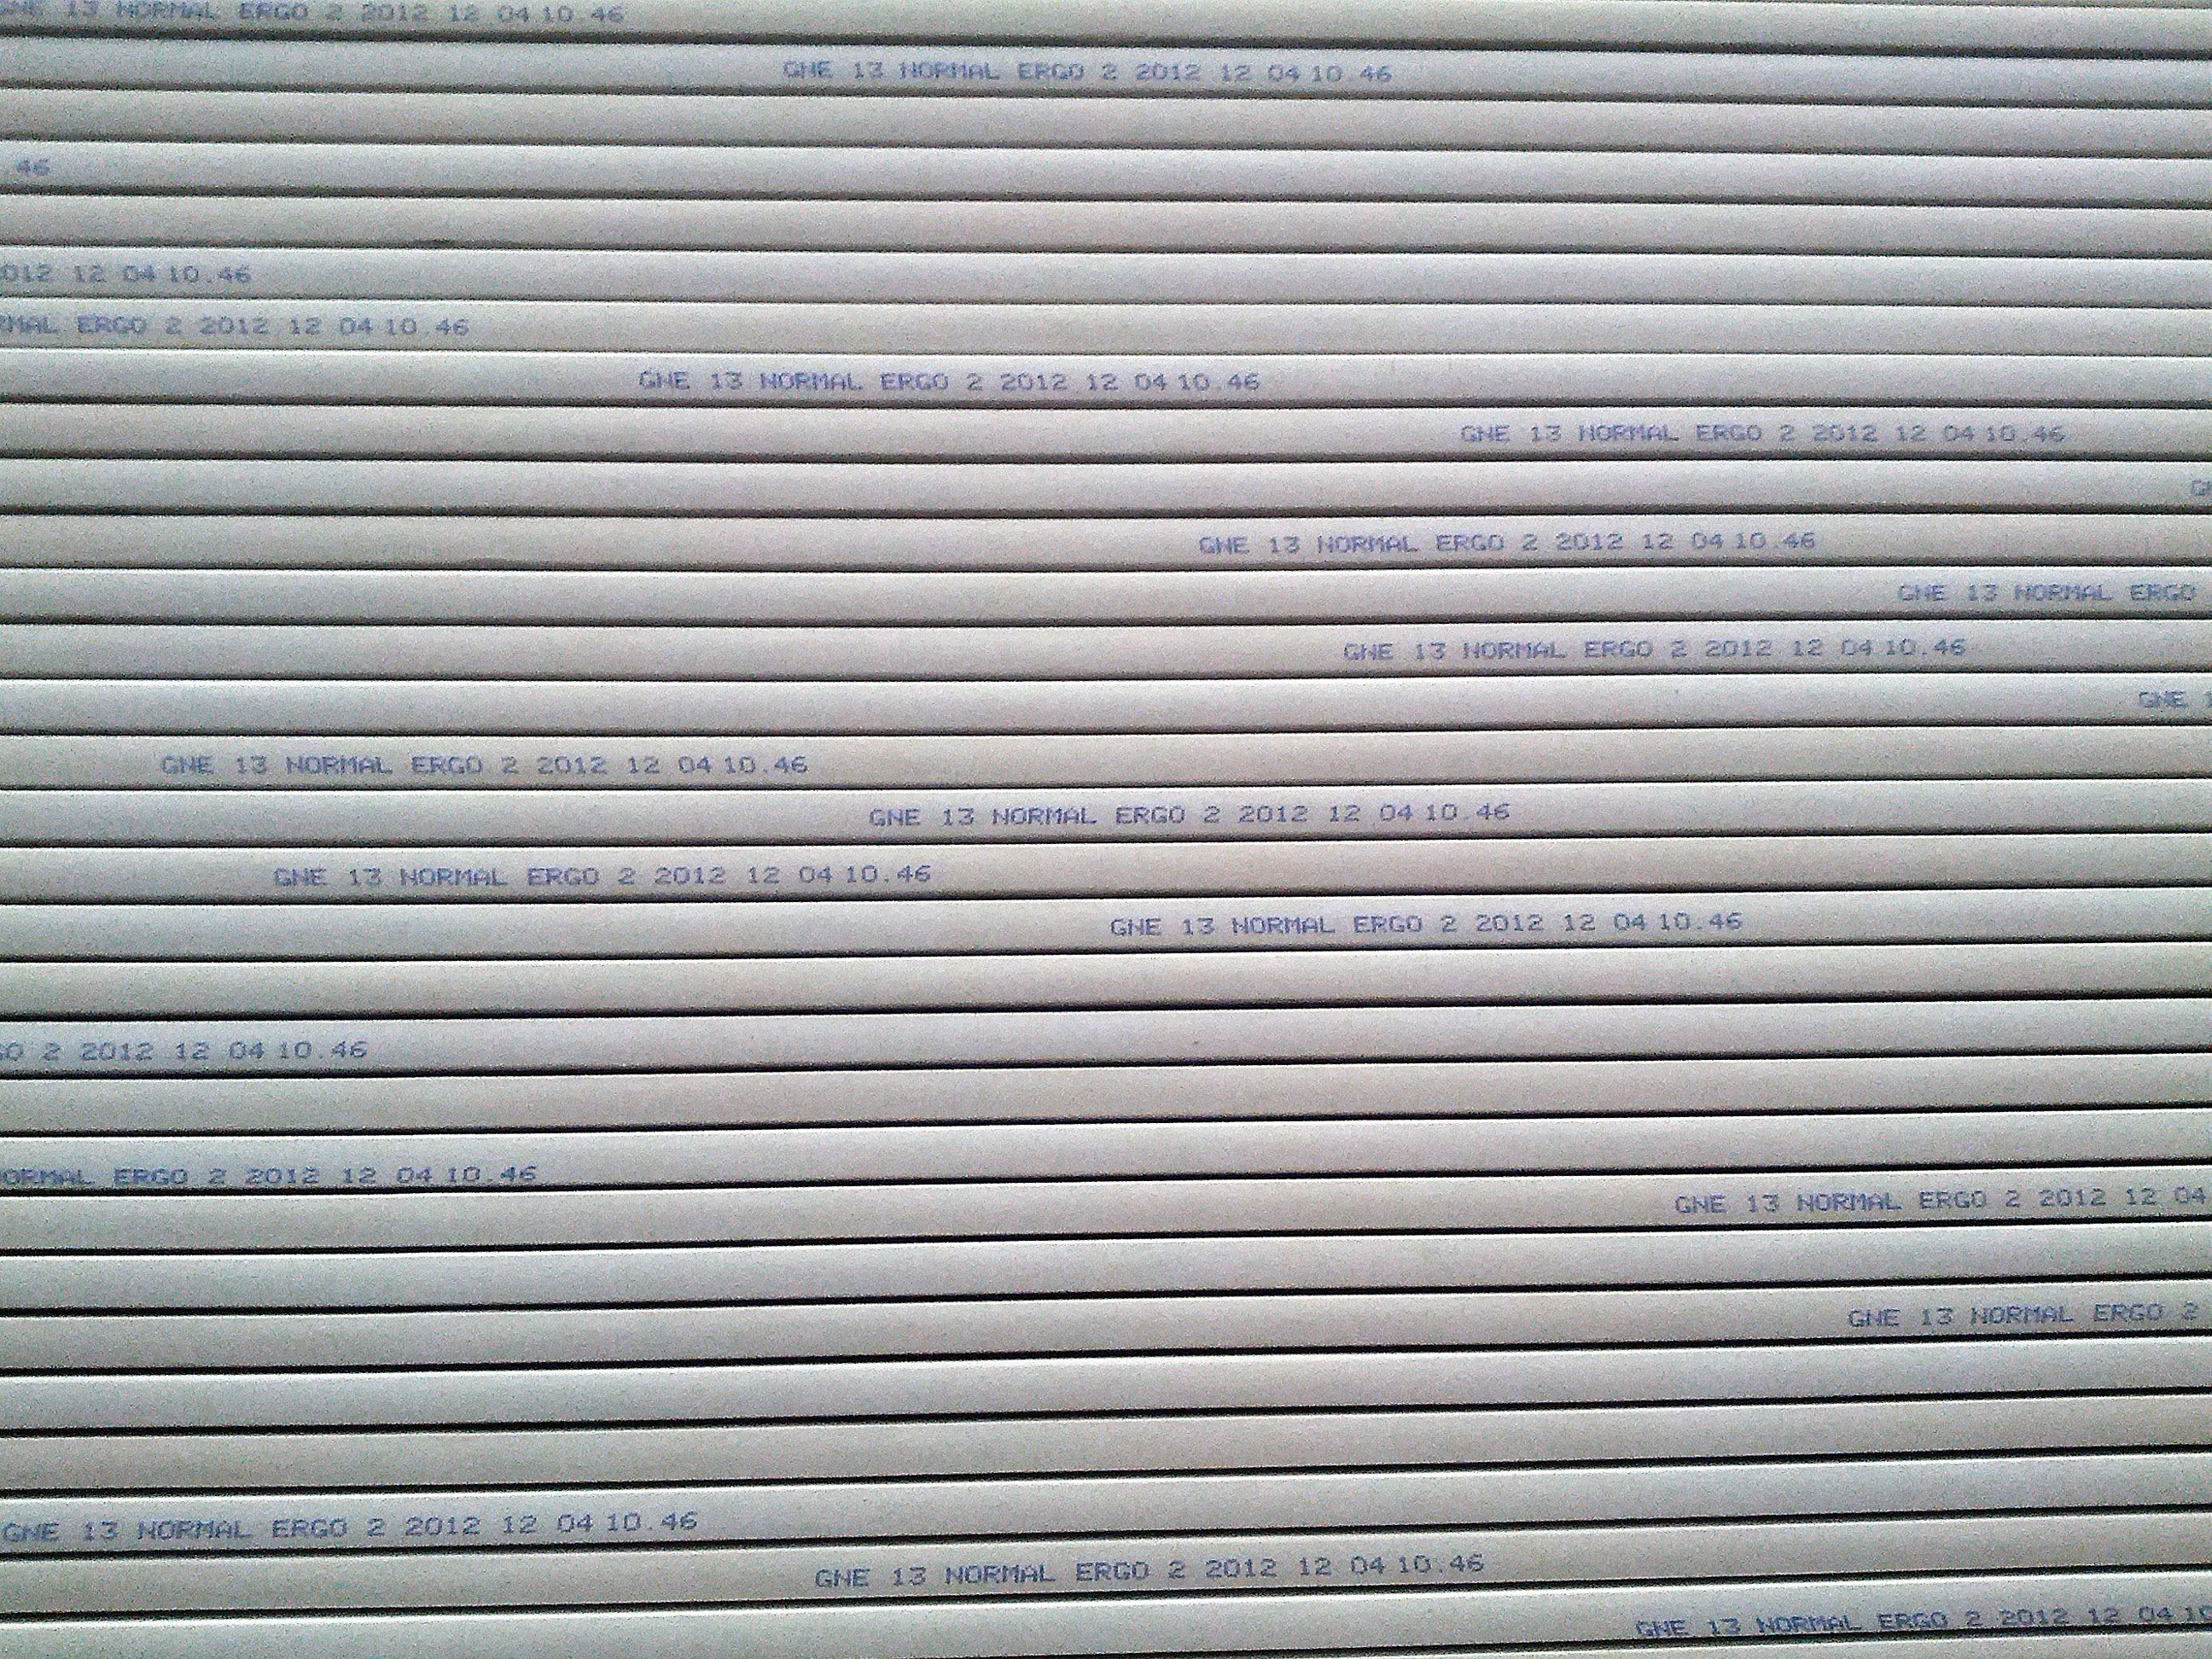 GNE 13 NORMAL ERGO 2 2012 12 04 10.46
GNE 13 NORMAL ERGO 2 2012 12 04 10.46
46
012 12 04 10.46
RMAL ERGO 2 2012 12 04 10.46
GNE 13 NORMAL ERGO 2 2012 12 04 10.46
GNE 13 NORMAL ERGO 2 2012 12 04 10.46
GNE 13 NORMAL ERGO 2 2012 12 04 10.46
GNE 13 NORMAL ERGO
GNE 13 NORMAL ERGO 2 2012 12 04 10.46
GNE
GNE 13 NORMAL ERGO 2 2012 12 04 10.46
GNE 13 NORMAL ERGO 2 2012 12 04 10.46
GNE 13 NORMAL ERGO 2 2012 12 04 10.46
GNE 13 NORMAL ERGO 2 2012 12 04 10.46
GO 2 2012 12 04 10.46
ORMAL ERGO 2 2012 12 04 10.46
GNE 13 NORMAL ERGO 2 2012 12 04
GNE 13 NORMAL ERGO 2
GNE 13 NORMAL ERGO 2 2012 12 04 10.46
GNE 13 NORMAL ERGO 2 2012 12 04 10.46
GNE 13 NORMAL ERGO 2 2012 12 04 10